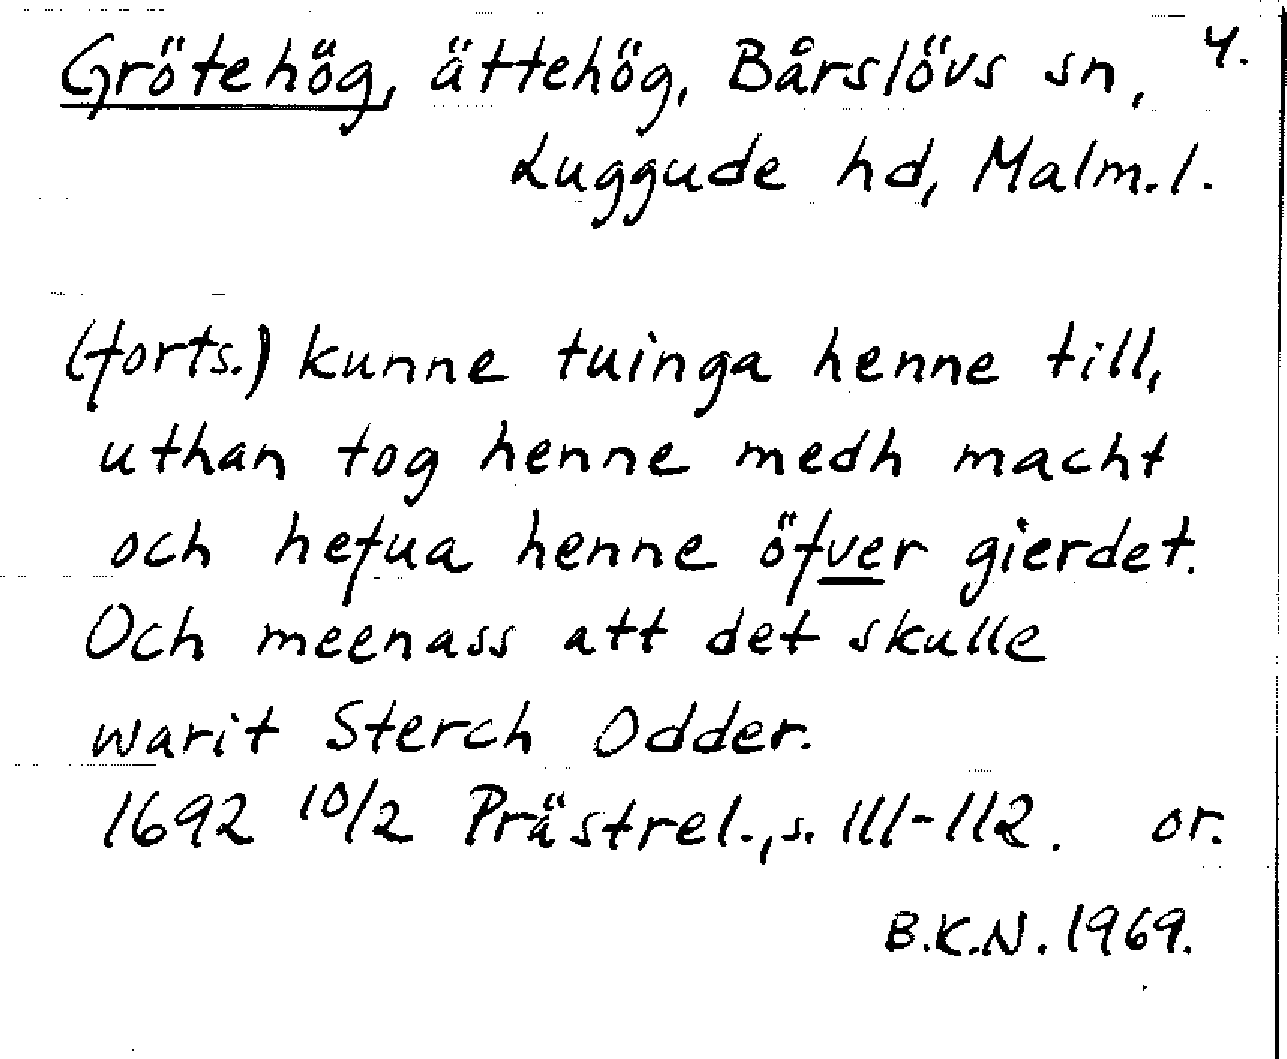 Grötehög, ättehög, Bårslövs sn, 4.
Luggude hd, Malm.l.
(forts.) kunne tuinga henne till,
uthan tog henne medh macht
och hefua henne öfver gierdet.
Och meenass att det skulle
warit Sterch Odder.
1692 10/2 Prästrel., s. 111-112. or.
B.K.N. 1969.